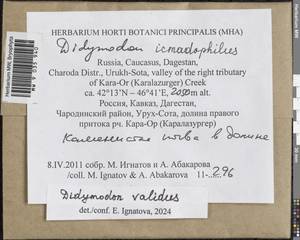 HERBARIUM HORTI BOTANICI PRINCIPALIS (MHA)
Didymodon icmadophilus
Russia, Caucasus, Dagestan,
Charoda Distr., Urukh-Sota, valley of the right tributary
of Kara-Or (Karalazurger) Creek
ca. 42°13'N – 46°41'E, 2050 m alt.
Россия, Кавказ, Дагестан,
Чародинский район, Урух-Сота, долина правого
притока рч. Кара-Ор (Каралазургер)
Каменистая почва в долине
8.IV.2011 собр. М. Игнатов и А. Абакарова
/coll. M. Ignatov & A. Abakarova 11-296
Didymodon validus
det./conf. E. Ignatova, 2024
Herbarium MW, Bryophyta
MW 9 035 940